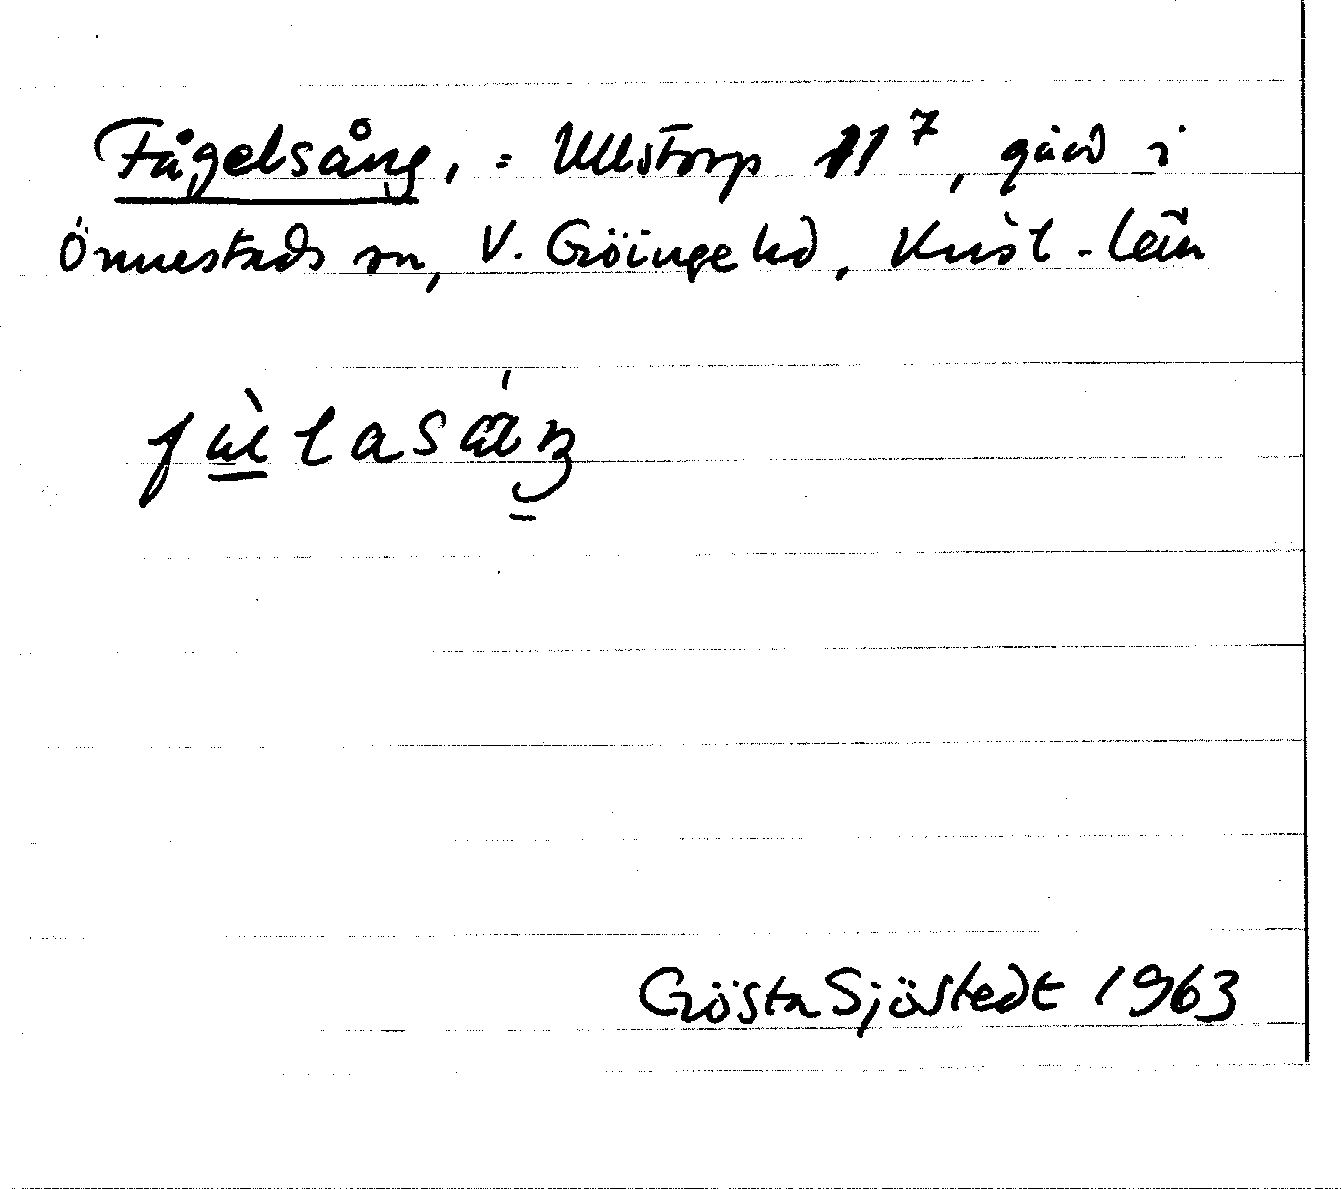 Fågelsång, = Ullstorp 11⁷, gård i
Önnestads sn, V. Göinge hd, Krist-län
Gösta Sjöstedt 1963